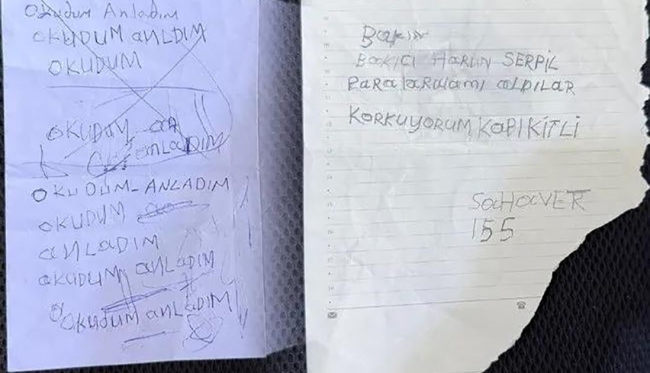 Okudum Anladım
OKUDUM aNLDIM
OKUDUM
OKUDUM
anLaDIM
OKUDUM-ANLADIM
OKUDUM
aNLaDIM
OKUDUM aNLaDIM
OKUDUM aNLaDIM
Bakıcı
BaKICI HaRUN SERPİL
PaRaLaRımı aLDILAR
KORKUYORUM KaPI KİTLİ
SaHaVET
155